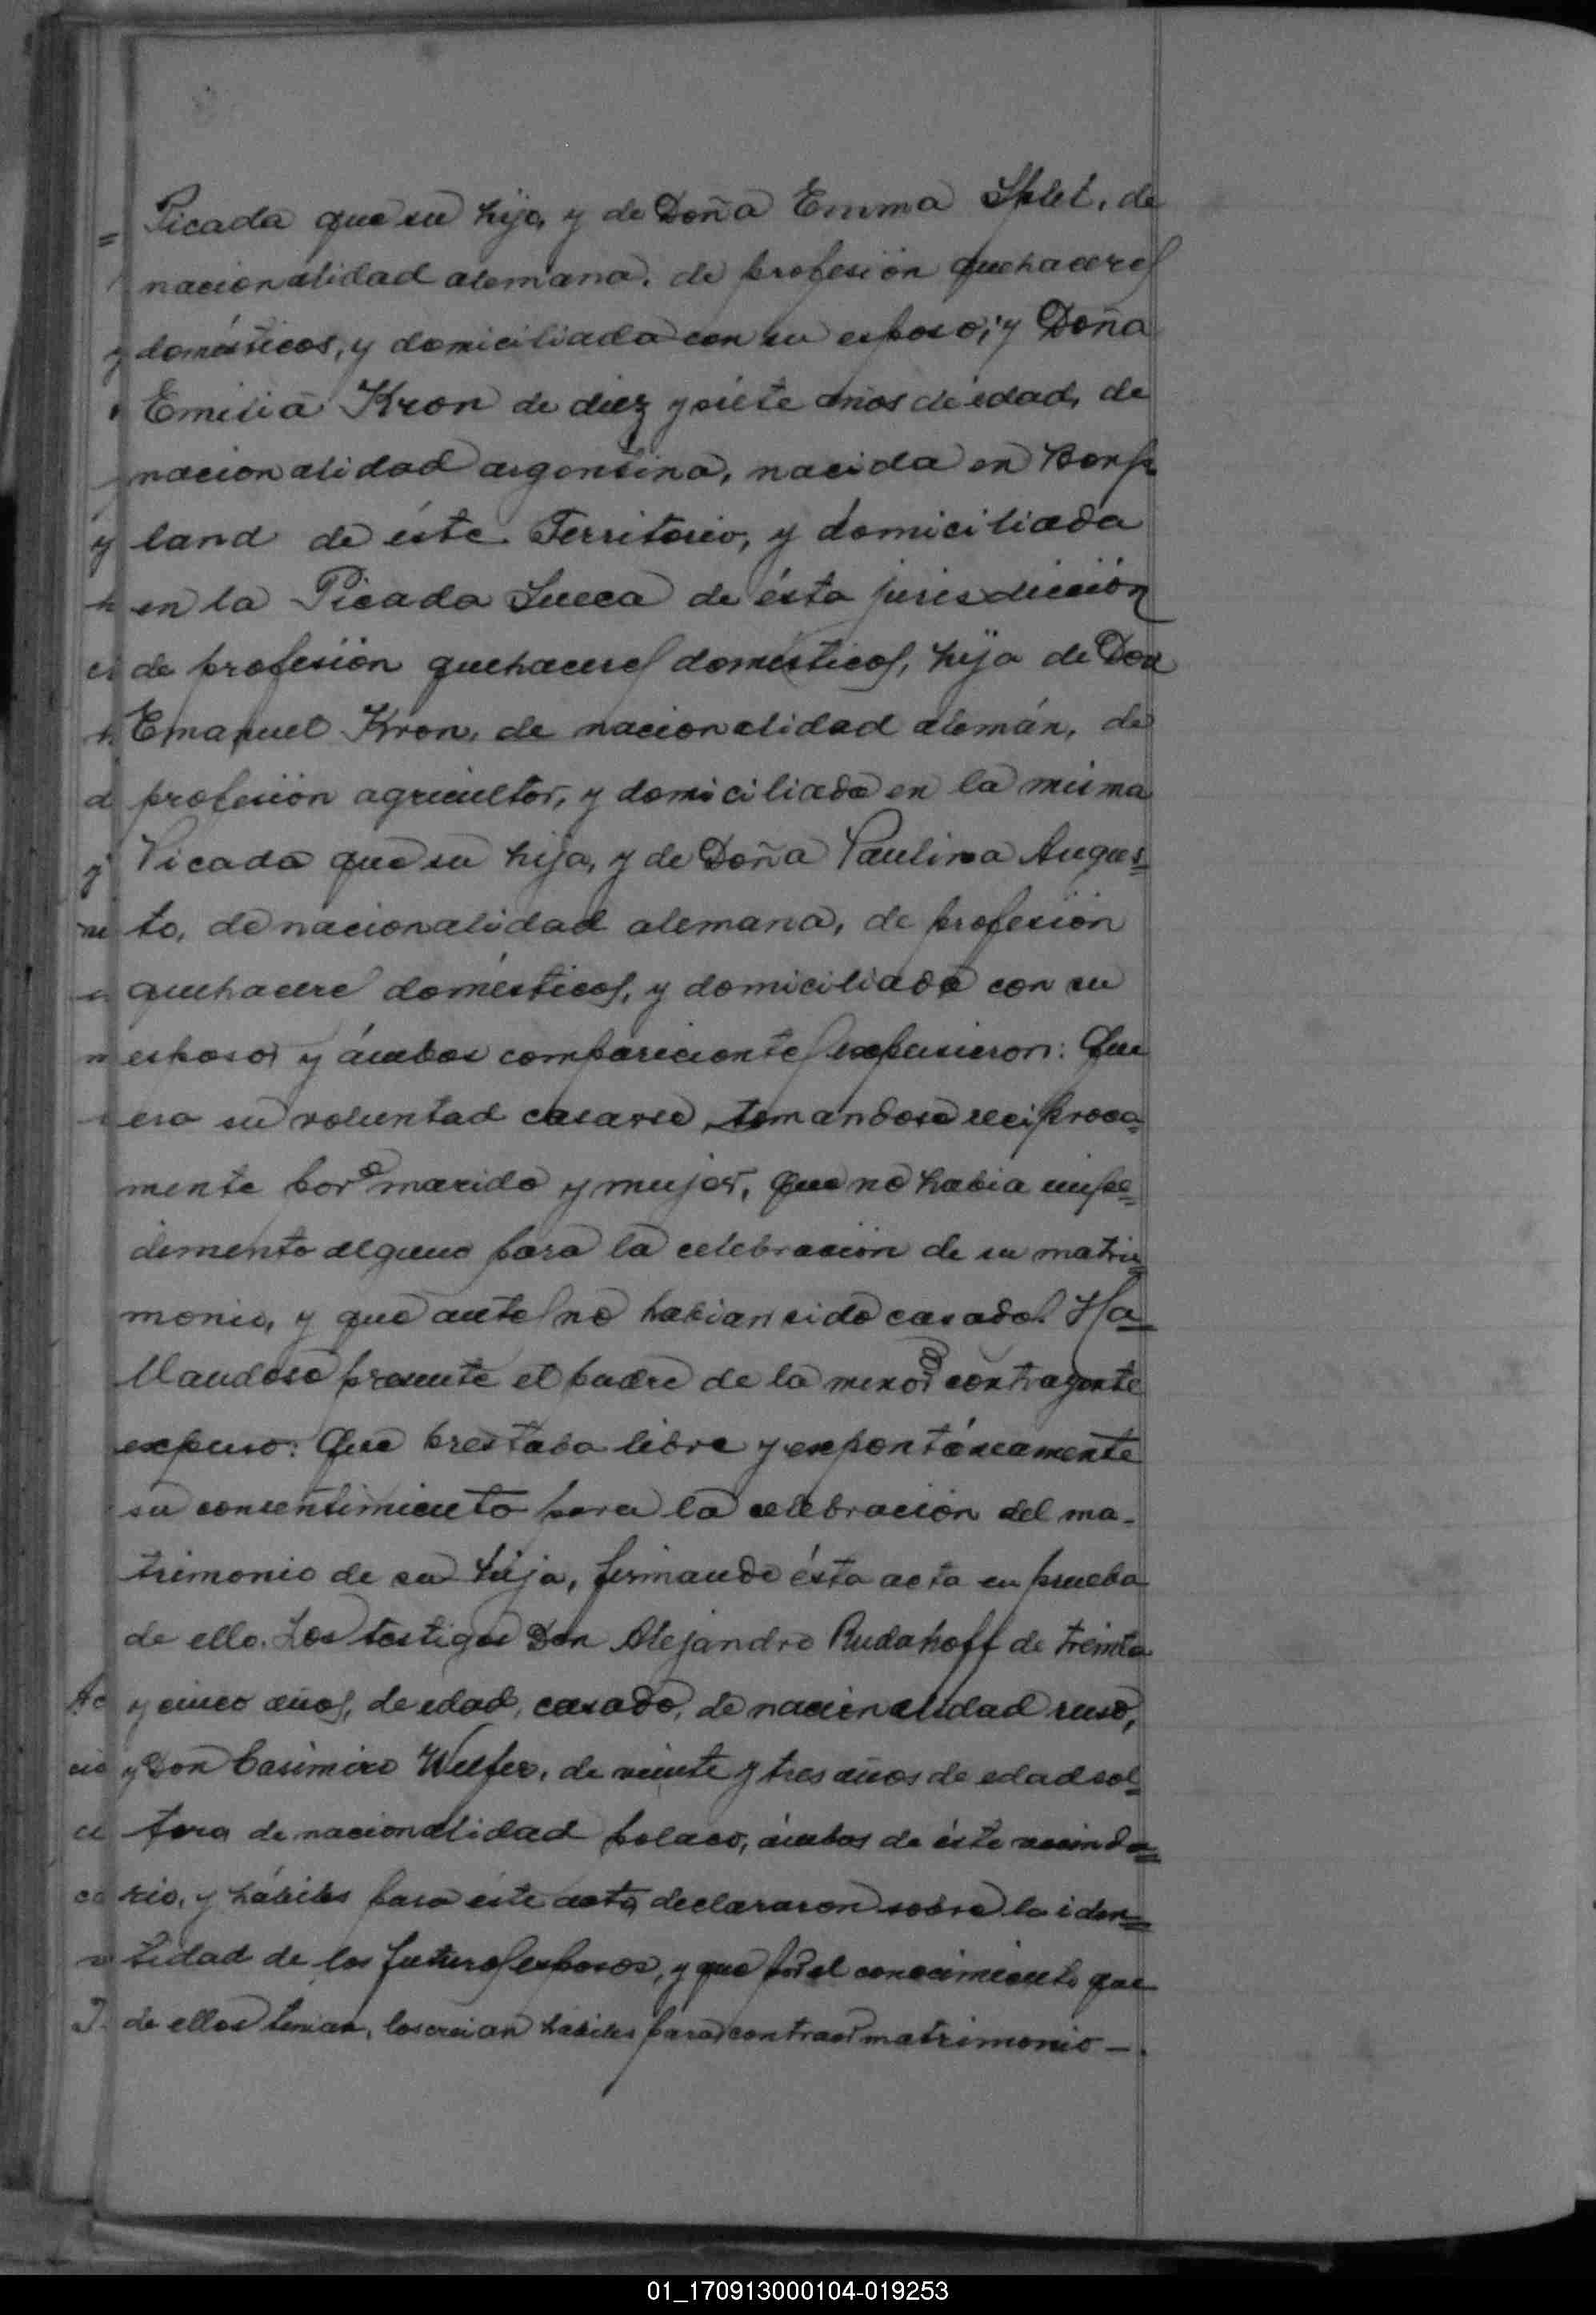 Picada que su hijo, y de Doña Emma Splet, de
nacionalidad alemana, de profesión quehaceres
domésticos, y domiciliada con su esposo; y Doña
Emilia Kron de diez y siete años de edad, de
nacionalidad argentina, nacida en Bonp
land de éste Territorio, y domiciliada
en la Picada Sueca de ésta jurisdicción
de profesión quehaceres domésticos, hija de Don
Emanuel Kron, de nacionalidad alemán, de
profesión agricultor, y domiciliado en la misma
Picada que su hija, y de Doña Paulina Augus=
to, de nacionalidad alemana, de profesión
quehacere domésticos, y domiciliada con su
esposo, y ámbos comparecientes expusieron: Que
era su voluntad casarse, tomandose reciproca=
mente por marido y mujer, que no habia impe=
dimento alguno para la celebración de su matri=
monio, y que antes no habian sido casados. Ha=
llandose presente el padre de la menor contrayente
expuso: Que prestaba libre y expontáneamente
su consentimiento para la celebración del ma-
trimonio de su hija, firmando ésta acta en prueba
de ello. Los testigos Don Alejandro Rudahoff de treinta
y cinco años, de edad, casado, de nacionalidad ruso,
y Don Casimiro Welfer, de veinte y tres años de edad sol=
tero, de nacionalidad polaco, ámbos de éste vecinda=
rio, y hábiles para éste acto, declararon sobre la iden=
tidad de los futuros esposos, y que por el conocimiento que
de ellos tenian, los creian hábiles para contraer matrimonio —.
01_170913000104-019253